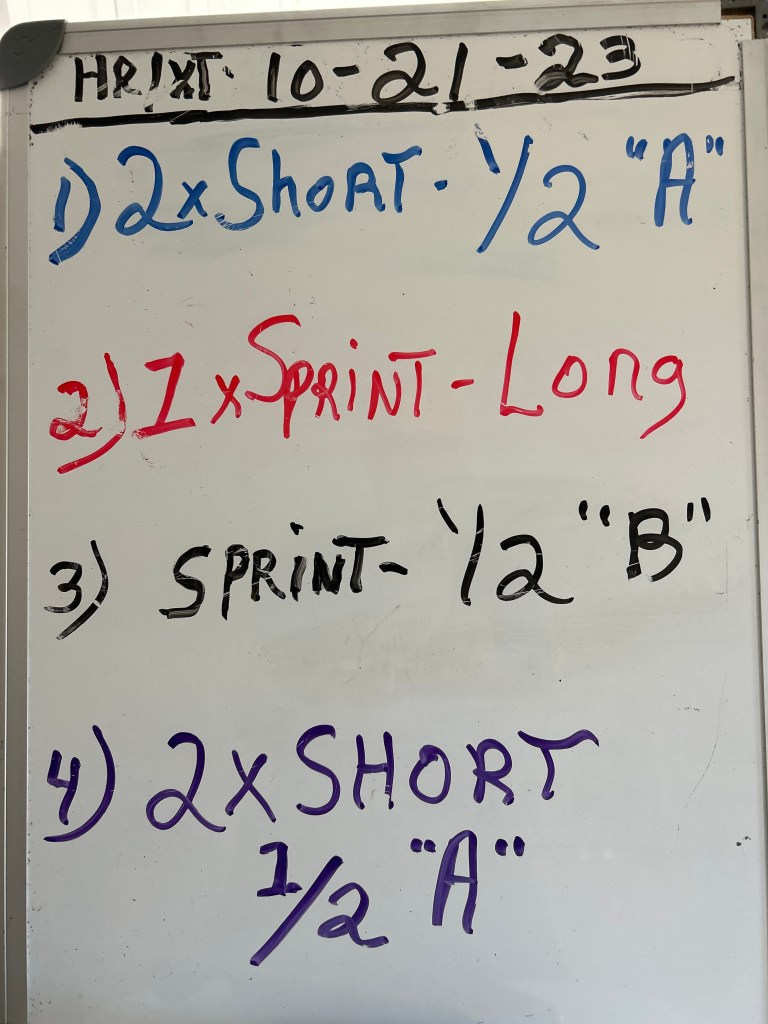 HR/XT. 10-21-23
1) 2x ShoRT. 1/2 "A"
2) 1 x SPRiNT - Long
3) SPRiNT- 1/2 "B"
4) 2X SHORT
1/2 "A"